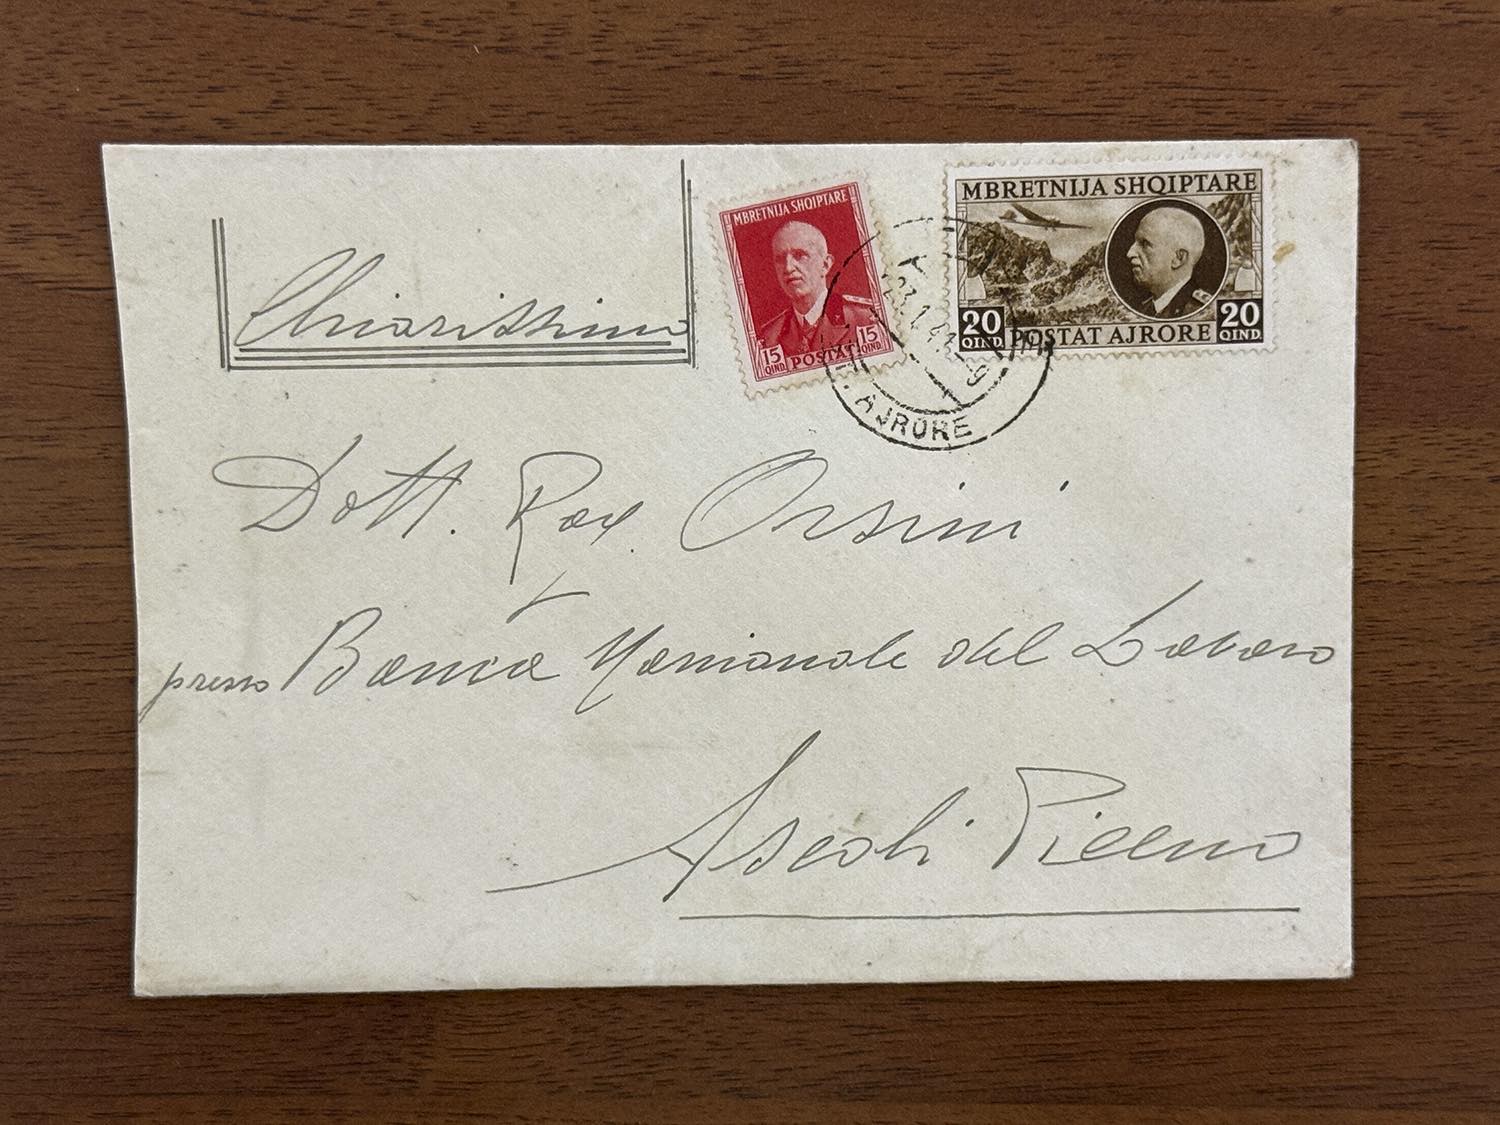 MBRETNIJA SHQIPTARE
15 QIND POSTAT 15 QIND
MBRETNIJA SHQIPTARE
20 QIND POSTAT AJRORE 20 QIND
23.1.41
AJRORE
Chiarissimo
Dott. Raf. Orsini
presso Banca Nazionale del Lavoro
Ascoli Piceno